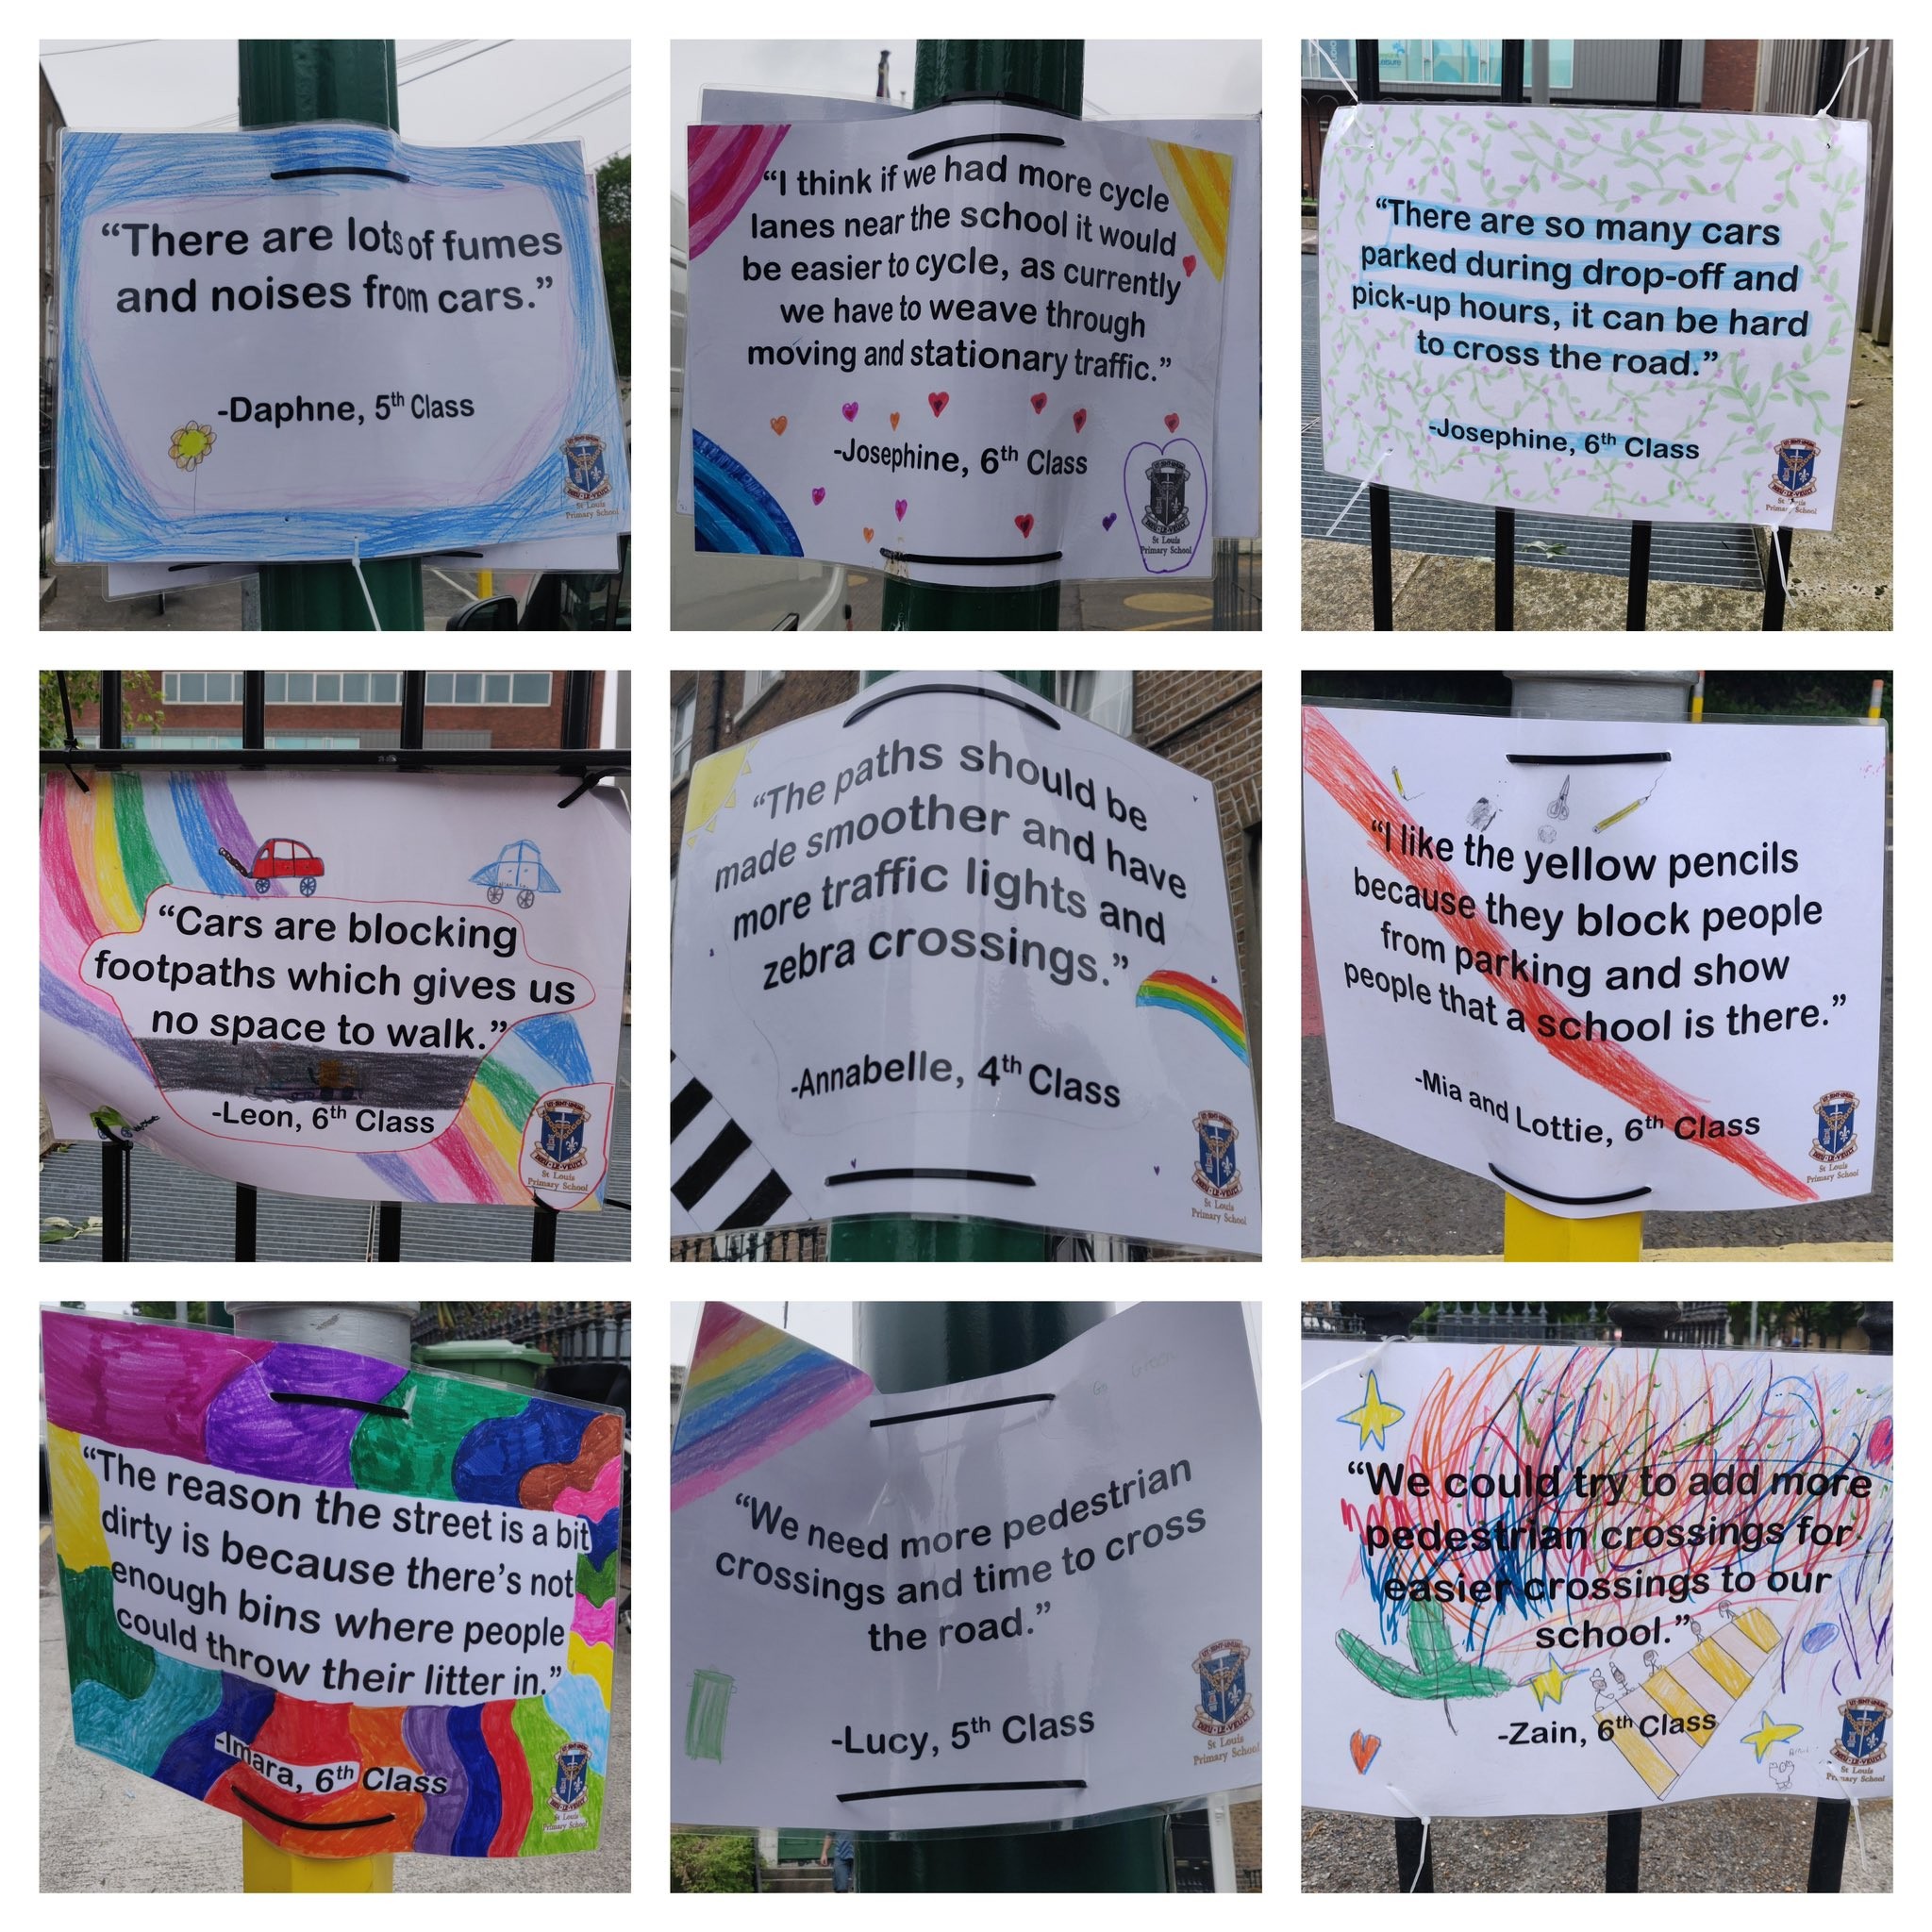 “There are lots of fumes
and noises from cars.”
-Daphne, 5th Class
St Louis
Primary School
“I think if we had more cycle
lanes near the school it would
be easier to cycle, as currently
we have to weave through
moving and stationary traffic.”
-Josephine, 6th Class
St Louis
Primary School
“There are so many cars
parked during drop-off and
pick-up hours, it can be hard
to cross the road.”
-Josephine, 6th Class
St Louis
Primary School
“Cars are blocking
footpaths which gives us
no space to walk.”
-Leon, 6th Class
DIEU·LE·VEULT
St Louis
Primary School
“The paths should be
made smoother and have
more traffic lights and
zebra crossings.”
-Annabelle, 4th Class
DIEU·LE·VEULT
St Louis
Primary School
“I like the yellow pencils
because they block people
from parking and show
people that a school is there.”
-Mia and Lottie, 6th Class
DIEU·LE·VEULT
St Louis
Primary School
“The reason the street is a bit
dirty is because there’s not
enough bins where people
could throw their litter in.”
-Imara, 6th Class
St Louis
Primary School
Go Green
“We need more pedestrian
crossings and time to cross
the road.”
-Lucy, 5th Class
DIEU·LE·VEULT
St Louis
Primary School
“We could try to add more
pedestrian crossings for
easier crossings to our
school.”
-Zain, 6th Class
St Louis
Primary School